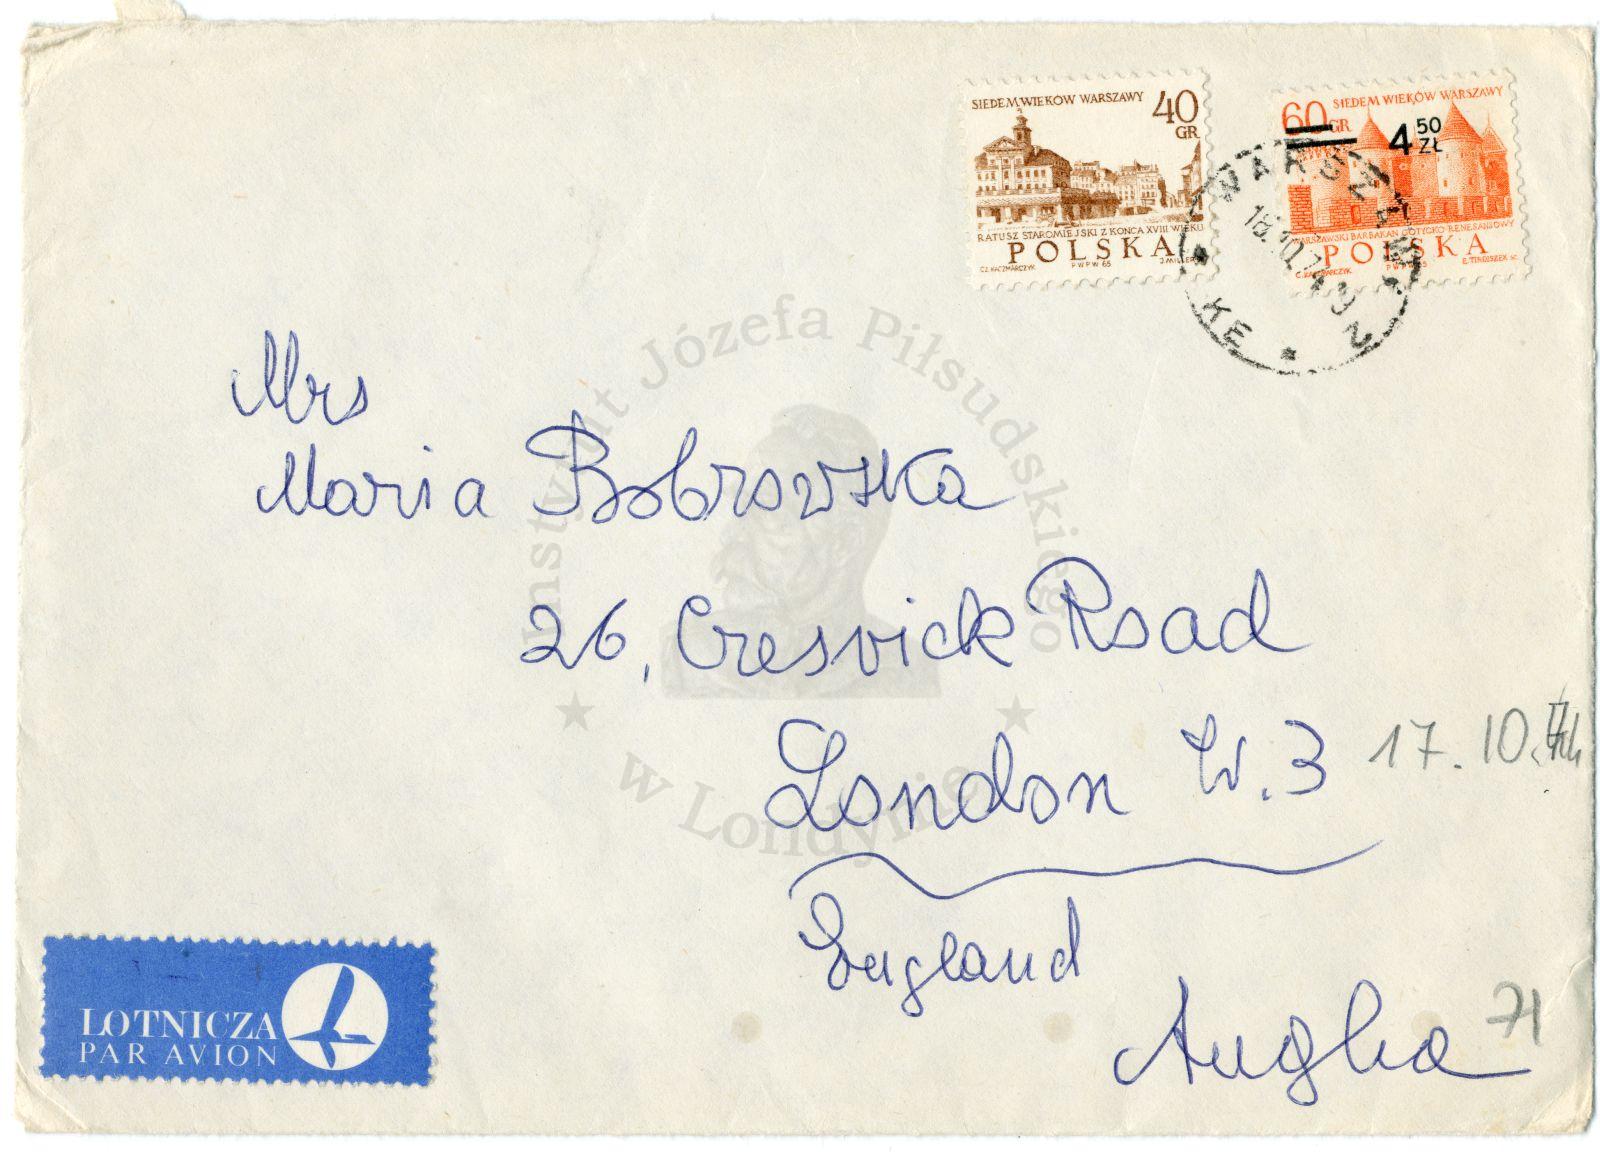 SIEDEM WIEKÓW WARSZAWY
40
GR
RATUSZ STAROMIEJSKI Z KOŃCA XVIII WIEKU
POLSKA
CZ. KACZMARCZYK PWPW 65 J. MILLER
SIEDEM WIEKÓW WARSZAWY
60 GR
4 50 ZŁ
WARSZAWSKI BARBAKAN GOTYCKO-RENESANSOWY
POLSKA
C. KACZMARCZYK PWPW 65 E. TIRDISZEK SC.
WARSZAWA 2
KE
Instytut Józefa Piłsudskiego
w Londynie
Mrs
Maria Bobrowska
26, Creswick Road
London W.3
17.10.
England
Anglia
71
LOTNICZA
PAR AVION